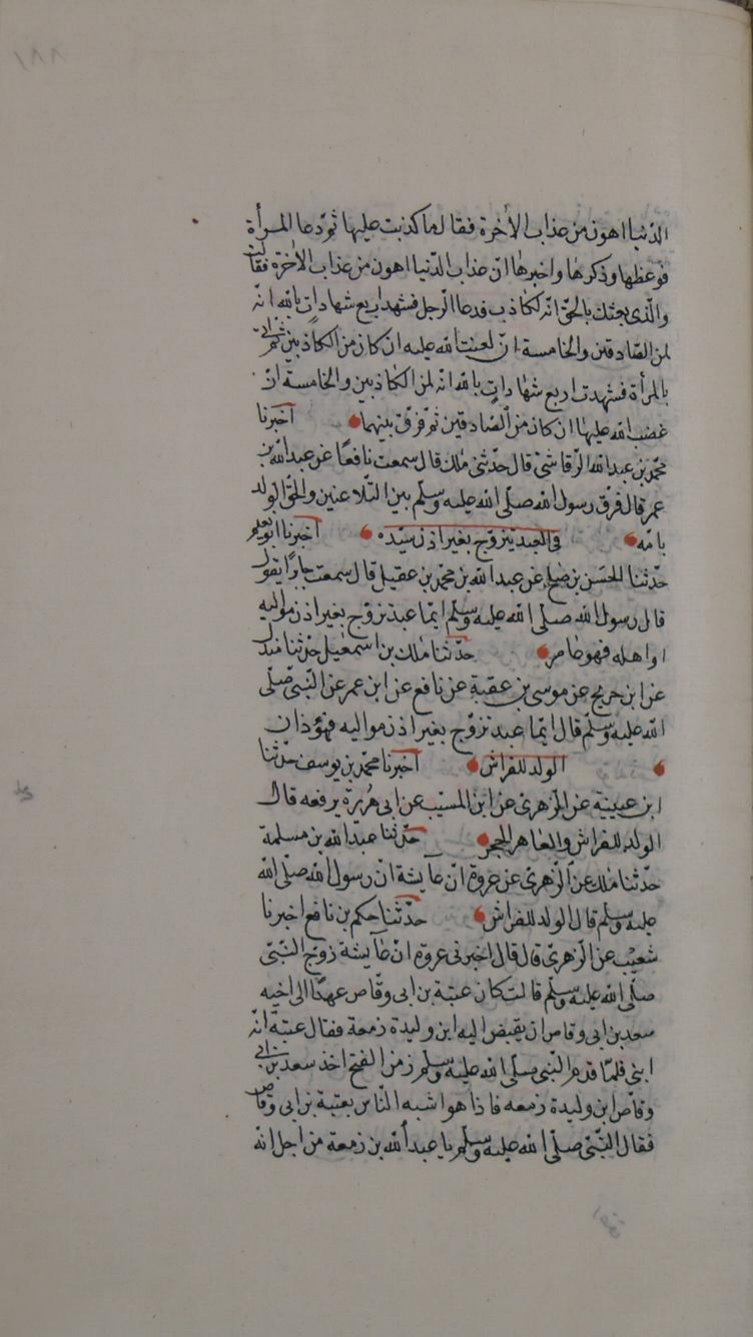 الدّنيا اهون من عذاب الأخرة فقال ما كذبت عليها ثمّ دعا المرأة
فوعظها وذكرها واخبرها انّ عذاب الدّنيا اهون من عذاب الأخرة فقالت
والّذى بعثك بالحقّ انّه لكاذب فدعا الرّجل فشهد اربع شهاداتٍ بالله انّه
لمن الصّادقين والخامسة انّ لعنت الله عليه ان كان من الكاذبين ثمّ اتى
بالمرأة فشهدت اربع شهاداتٍ بالله انّه لمن الكاذبين والخامسة انّ
غضب الله عليها ان كان من الصّادقين ثمّ فرّق بينهما اخبرنا
محمّد بن عبد الله الرّقاشىّ قال حدّثنى ملك قال سمعت نافعًا عن عبد الله بن
عمر قال فرّق رسول الله صلّى الله عليه وسلّم بين التّلاعنين والحق الولد
بامّه فى العبد يتزوّج بغير اذن سيّده اخبرنا ابو نعيم
حدّثنا الحسن بن صلح عن عبد الله بن محمّد بن عقيل قال سمعت جابرًا يقول
قال رسول الله صلّى الله عليه وسلّم ايّما عبد تزوّج بغير اذن مواليه
او اهله فهو عاهر حدّثنا ملك بن اسمعيل حدّثنا مندل
عن ابن جريج عن موسى بن عقبة عن نافع عن ابن عمر عن النّبىّ صلّى
الله عليه وسلّم قال ايّما عبد تزوّج بغير اذن مواليه فهو زان
الولد للفراش اخبرنا محمّد بن يوسف حدّثنا
ابن عيينة عن الزّهرى عن ابن المسيّب عن ابى هُريرة يرفعه قال
الولد للفراش وللعاهر الحجر حدّثنا عبد الله بن مسلمة
حدّثنا ملك عن الزّهرىّ عن عروة انّ عآيشة انّ رسول الله صلّى الله
عليه وسلّم قال الولد للفراش حدّثنا حكم بن نافع اخبرنا
شعيب عن الزّهرىّ قال قال اخبرنى عروة انّ عآيشة زوج النّبىّ
صلّى الله عليه وسلّم قالت كان عتبة بن ابى وقّاص عهد الى اخيه
سعد بن ابى وقاص ان يقبض اليه ابن وليدة زمعة فقال عتبة انّه
ابنى فلمّا قدم النّبى صلّى الله عليه وسلّم زمن الفتح اخذ سعد بن ابى
وقّاص ابن وليدة زمعه فاذا هو اشبه النّاس بعتبة بن ابى وقّاص
فقال النّبىّ صلّى الله عليه وسلّم يا عبد الله بن زمعة من اجل انّه